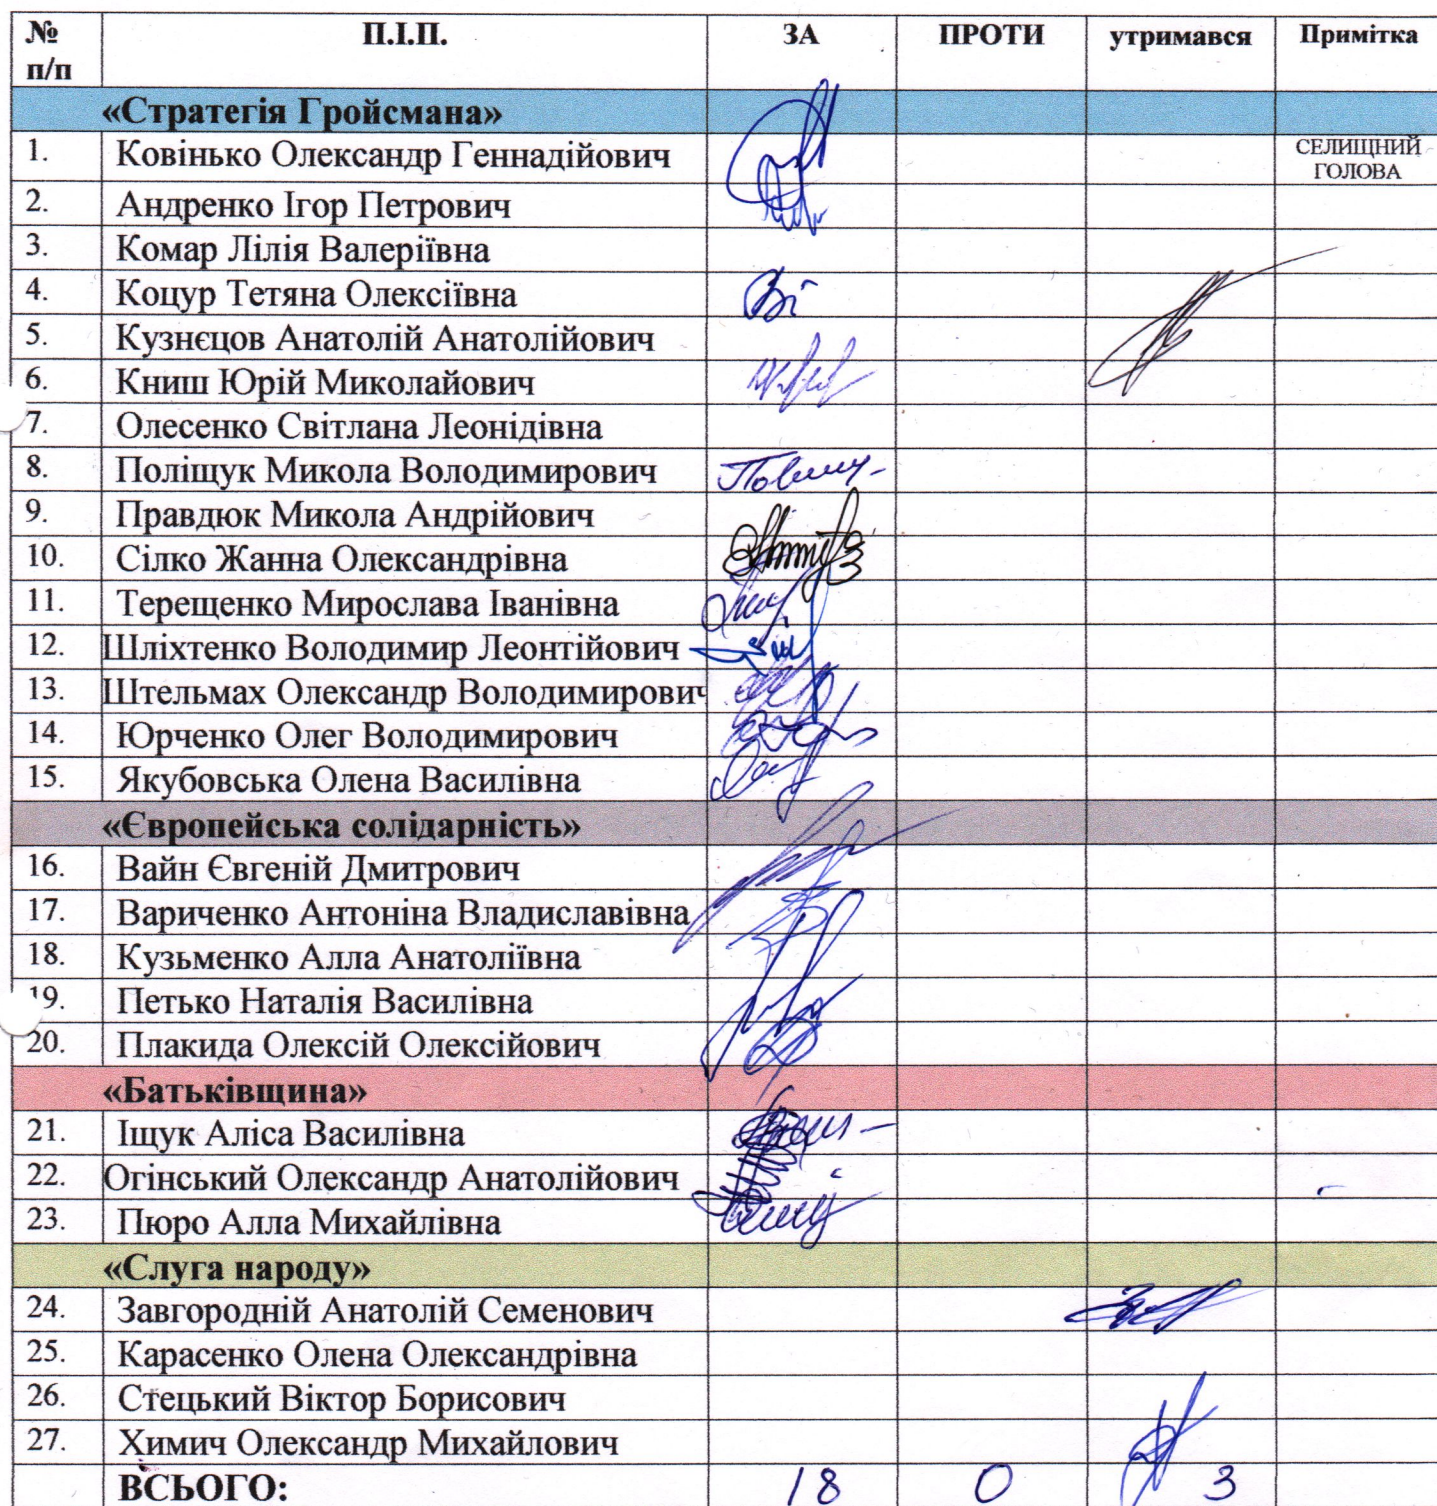 № п/п П.І.П. ЗА ПРОТИ утримався Примітка
«Стратегія Гройсмана»
1. Ковінько Олександр Геннадійович СЕЛИЩНИЙ ГОЛОВА
2. Андренко Ігор Петрович
3. Комар Лілія Валеріївна
4. Коцур Тетяна Олексіївна
5. Кузнєцов Анатолій Анатолійович
6. Книш Юрій Миколайович
7. Олесенко Світлана Леонідівна
8. Поліщук Микола Володимирович
9. Правдюк Микола Андрійович
10. Сілко Жанна Олександрівна
11. Терещенко Мирослава Іванівна
12. Шліхтенко Володимир Леонтійович
13. Штельмах Олександр Володимирович
14. Юрченко Олег Володимирович
15. Якубовська Олена Василівна
«Європейська солідарність»
16. Вайн Євгеній Дмитрович
17. Вариченко Антоніна Владиславівна
18. Кузьменко Алла Анатоліївна
19. Петько Наталія Василівна
20. Плакида Олексій Олексійович
«Батьківщина»
21. Іщук Аліса Василівна
22. Огінський Олександр Анатолійович
23. Пюро Алла Михайлівна
«Слуга народу»
24. Завгородній Анатолій Семенович
25. Карасенко Олена Олександрівна
26. Стецький Віктор Борисович
27. Химич Олександр Михайлович
ВСЬОГО: 18 0 3